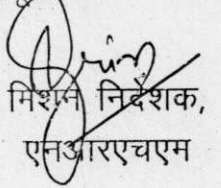 मिशन निदेशक,
एनआरएचएम